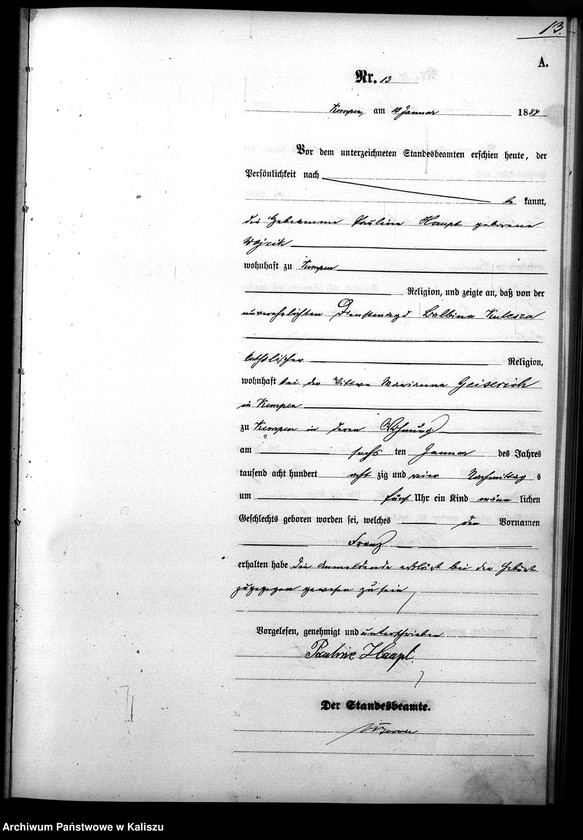 13.
A.
Nr. 13
Kempen, am 10 Januar 1884
Vor dem unterzeichneten Standesbeamten erschien heute, der
Persönlichkeit nach
be kannt,
die Hebeamme Pauline Haupt geborene
Wojcik
wohnhaft zu Kempen
Religion, und zeigte an, daß von der
unverehelichten Dienstmagd Balbina
katholischer Religion,
wohnhaft bei der Wittwe Marianna Geiserich
in Kempen
zu Kempen in deren Wohnung
am sechs ten Januar des Jahres
tausend acht hundert acht zig und vier Nachmittag s
um fünf Uhr ein Kind männ lichen
Geschlechts geboren worden sei, welches den Vornamen
Franz
erhalten habe die Anmeldende erklärt bei der Geburt
zugegen gewesen zu sein
Vorgelesen, genehmigt und unterschrieben
Pauline Haupt.
Der Standesbeamte.
Archiwum Państwowe w Kaliszu